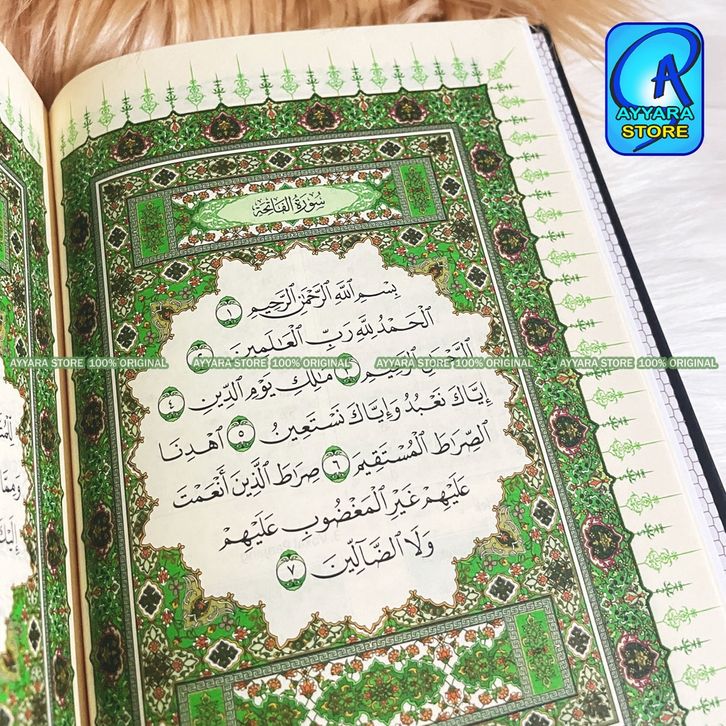 AYYARA
STORE
سُورَةُ الفَاتِحَةِ
بِسْمِ ٱللَّهِ ٱلرَّحْمَٰنِ ٱلرَّحِيمِ ١
ٱلْحَمْدُ لِلَّهِ رَبِّ ٱلْعَٰلَمِينَ
ٱلرَّحْمَٰنِ ٱلرَّحِيمِ مَٰلِكِ يَوْمِ ٱلدِّينِ ٤
إِيَّاكَ نَعْبُدُ وَإِيَّاكَ نَسْتَعِينُ ٥ ٱهْدِنَا
ٱلصِّرَٰطَ ٱلْمُسْتَقِيمَ ٦ صِرَٰطَ ٱلَّذِينَ أَنْعَمْتَ
عَلَيْهِمْ غَيْرِ ٱلْمَغْضُوبِ عَلَيْهِمْ
وَلَا ٱلضَّآلِّينَ ٧
AYYARA STORE 100% ORIGINAL AYYARA STORE 100% ORIGINAL AYYARA STORE 100% ORIGINAL AYYARA STORE 100% ORIGINAL